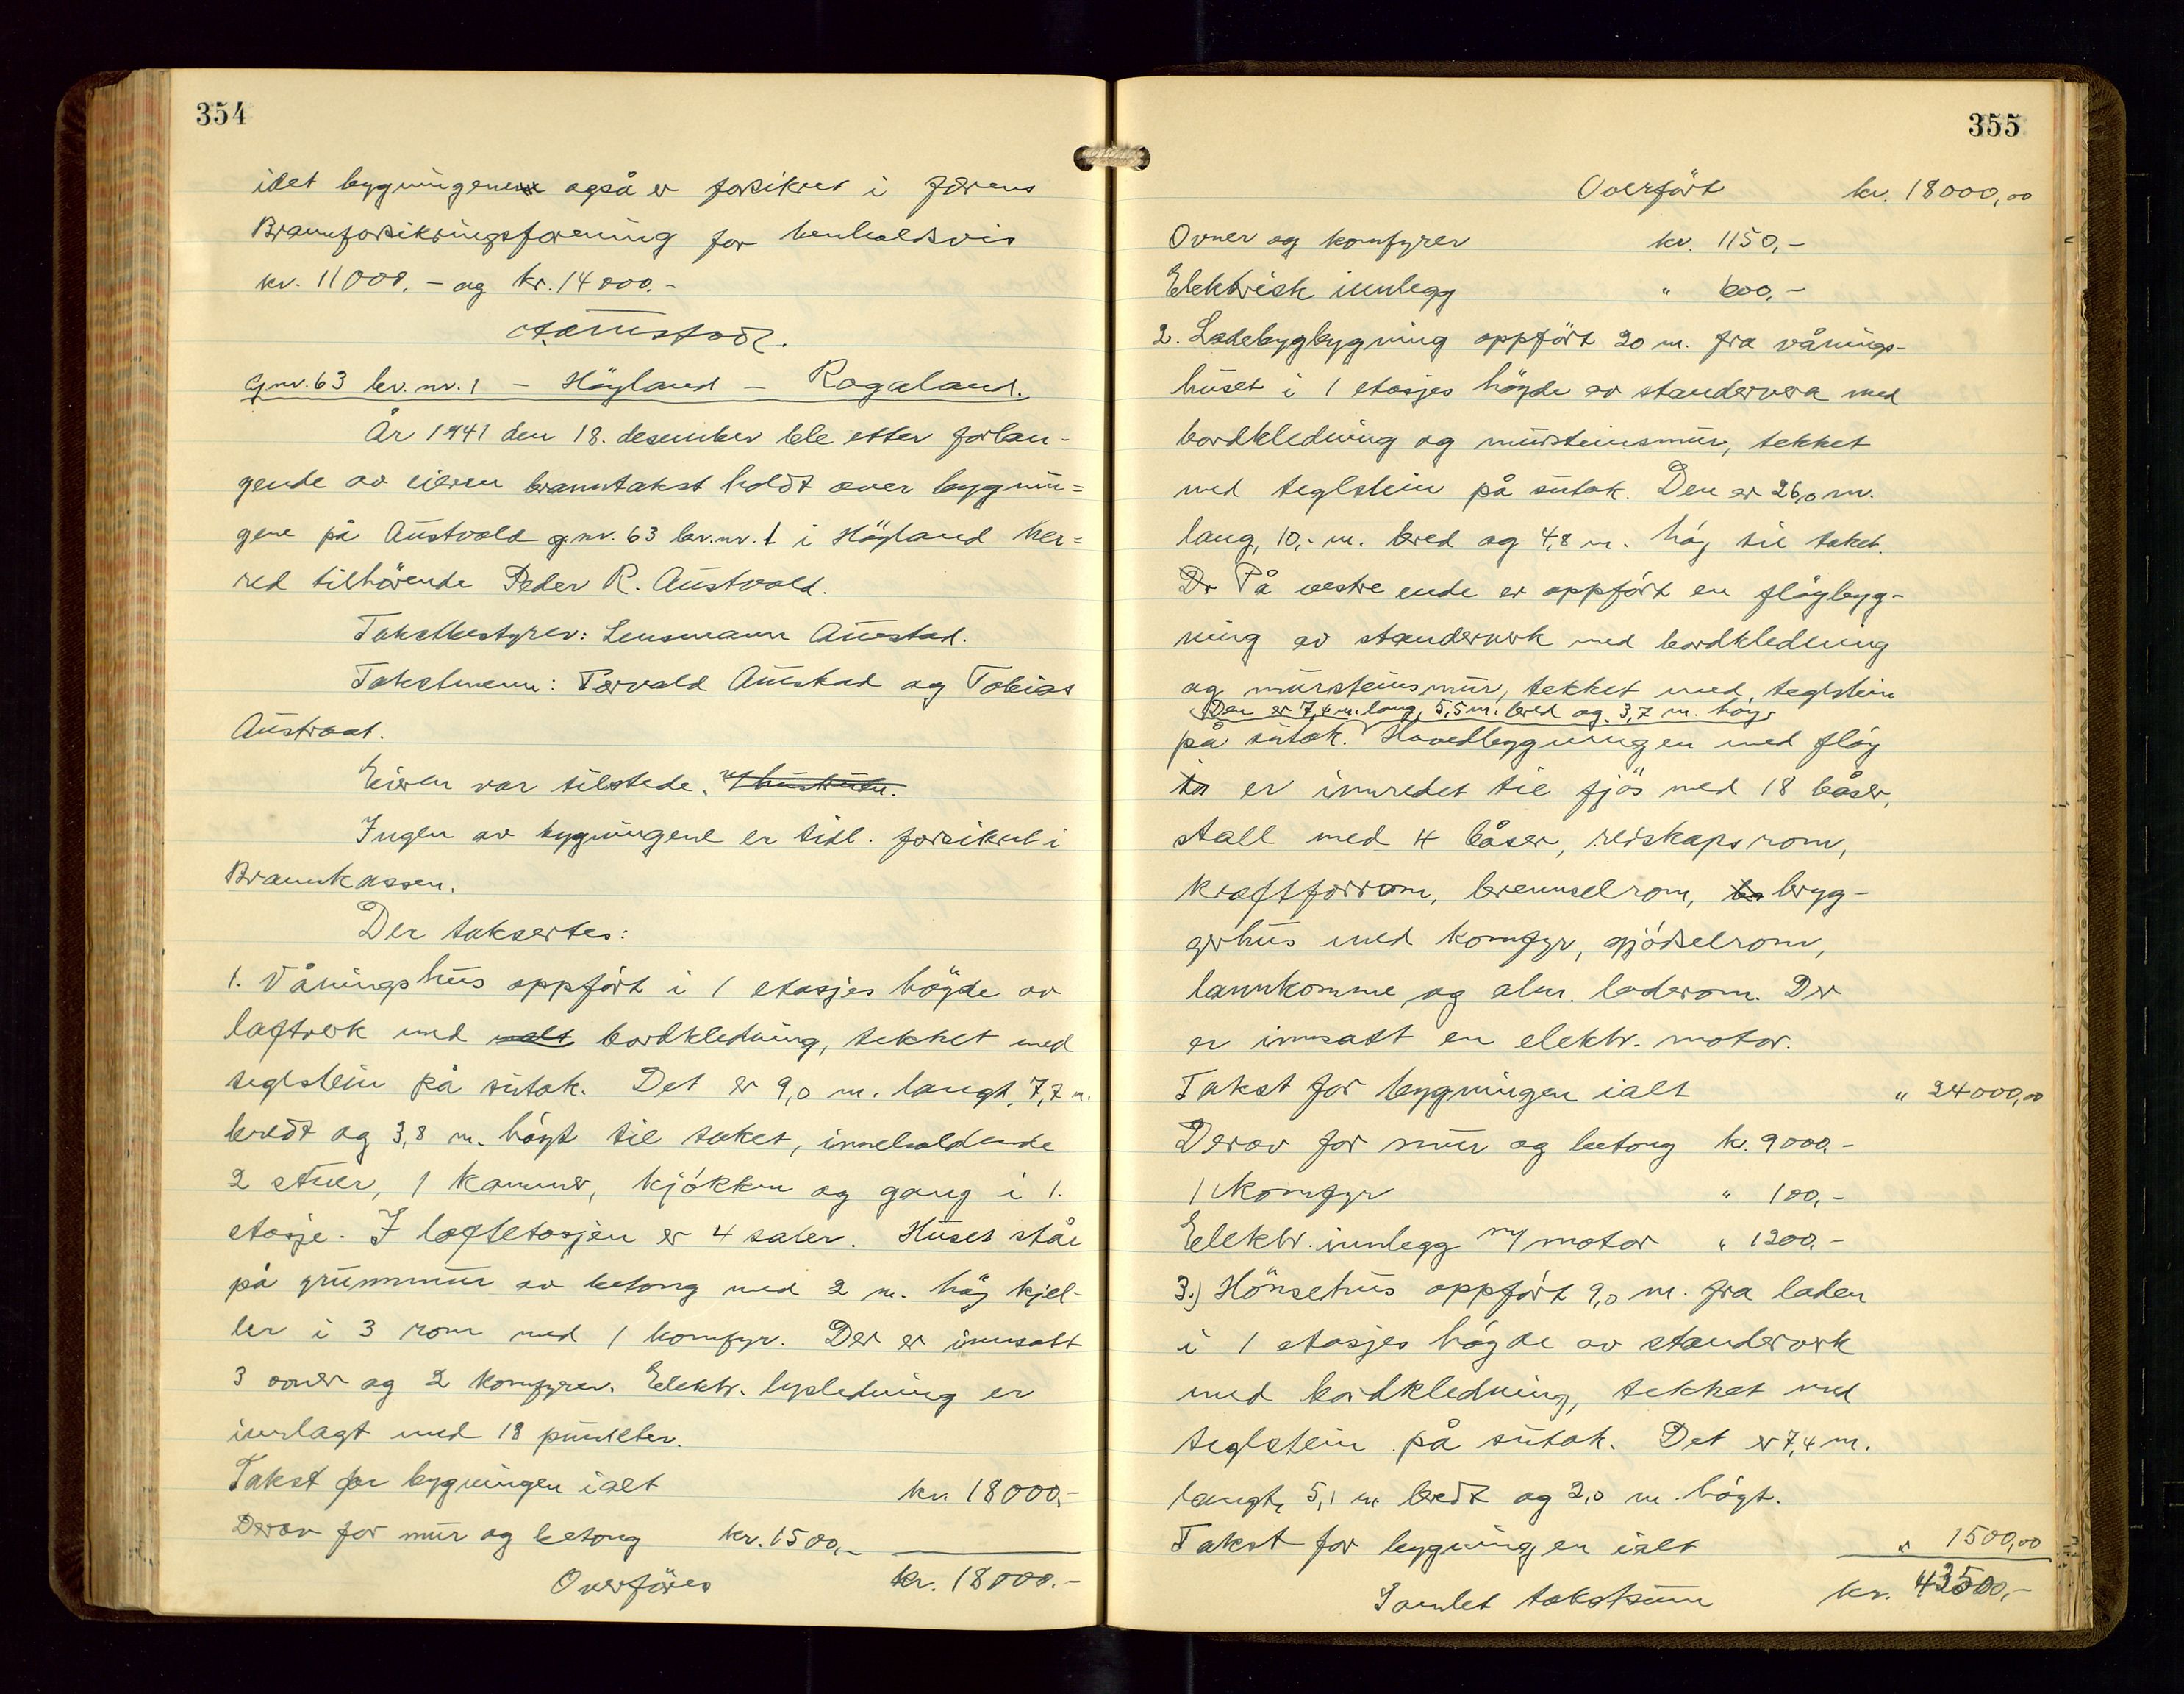 354
idet bygningene også er forsikret i Jærens
Brannforsikringsforening for henholdsvis
kr. 11000.- og kr. 14000.-
Aumstad.
Gnr. 63 br. nr. 1 - Höyland - Rogaland.
År 1941 den 18. desember ble etter forlan-
gende av eieren branntakst holdt over bygnin=
gene på Austvold gnr. 63 br. nr. 1 i Höyland her=
red tilhörende Peder R. Austvold.
Takstbestyrer: Lensmann Aumstad.
Takstmenn: Torvald Aumstad og Tobias
Austraat.
Eieren var tilstede.
Ingen av bygningene er tidl. forsikret i
Brannkassen.
Der taksertes:
1. Våningshus oppfört i 1 etasjes höyde av
laftverk med bordkledning, tekket med
teglstein på sutak. Det er 9,0 m. langt, 7,7 m.
bredt og 3,8 m. höyt til taket, inneholdende
2 stuer, 1 kammer, kjökken og gang i 1.
etasje. I loftetasjen er 4 saler. Huset står
på grunnmur av betong med 2 m. höy kjel-
ler i 3 rom med 1 komfyr. Der er innsatt
3 ovner og 2 komfyrer. Elektr. lysledning er
innlagt med 18 punkter.
Takst for bygningen ialt kr. 18000,-
Derav for mur og betong kr. 1500,-
Overföres kr. 18000.-
355
Overfört kr. 18000,00
Ovner og komfyrer kr. 1150,-
Elektrisk innlegg " 600,-
2. Ladebygbygning oppfört 20 m. fra vånings-
huset i 1 etasjes höyde av standerverk med
bordkledning og mursteinsmur, tekket
med teglstein på sutak. Den er 26,0 m.
lang, 10,- m. bred og 4,8 m. höy til taket.
På vestre ende er oppfört en flöybyg-
ning av standerverk med bordkledning
og mursteinsmur, tekket med teglstein
Den er 7,4 m. lang, 5,5 m. bred og 3,7 m. höy.
på sutak. Hovedbygningen med flöy
er innredet til fjös med 18 båser,
stall med 4 båser, reiskapsrom,
kraftforrom, brenselrom, bryg-
gerhus med komfyr, gjödselrom,
lannkomme og alm. laderom. Der
er innsatt en elektr. motor.
Takst for bygningen ialt " 24000,00
Derav for mur og betong kr. 9000.-
1 komfyr " 100,-
Elektr. innlegg m/motor " 1200.-
3.) Hönsehus oppfört 9,0 m. fra laden
i 1 etasjes höyde av standerverk
med bordkledning, tekket med
teglstein på sutak. Det er 7,4 m.
langt, 5,1 m bredt og 2,0 m. höyt.
Takst for bygningen ialt " 1500,00
Samlet takstsum kr. 43500,-